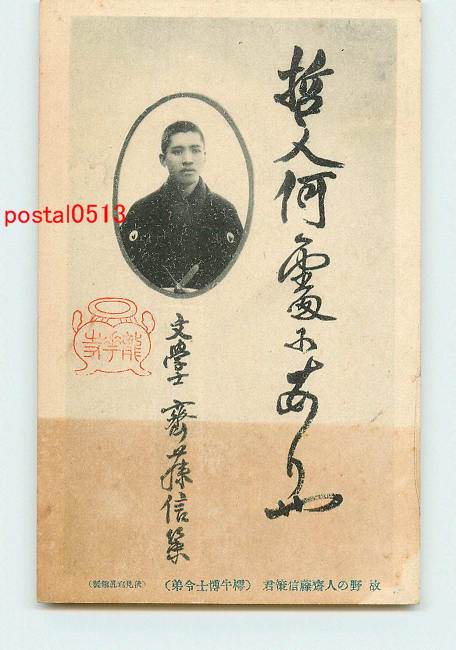 哲人何處にありや
文學士 齋藤信策
龍華寺
故 野の人齋藤信策君 (樗牛博士令弟)
(伏見寫眞館製)
postal0513